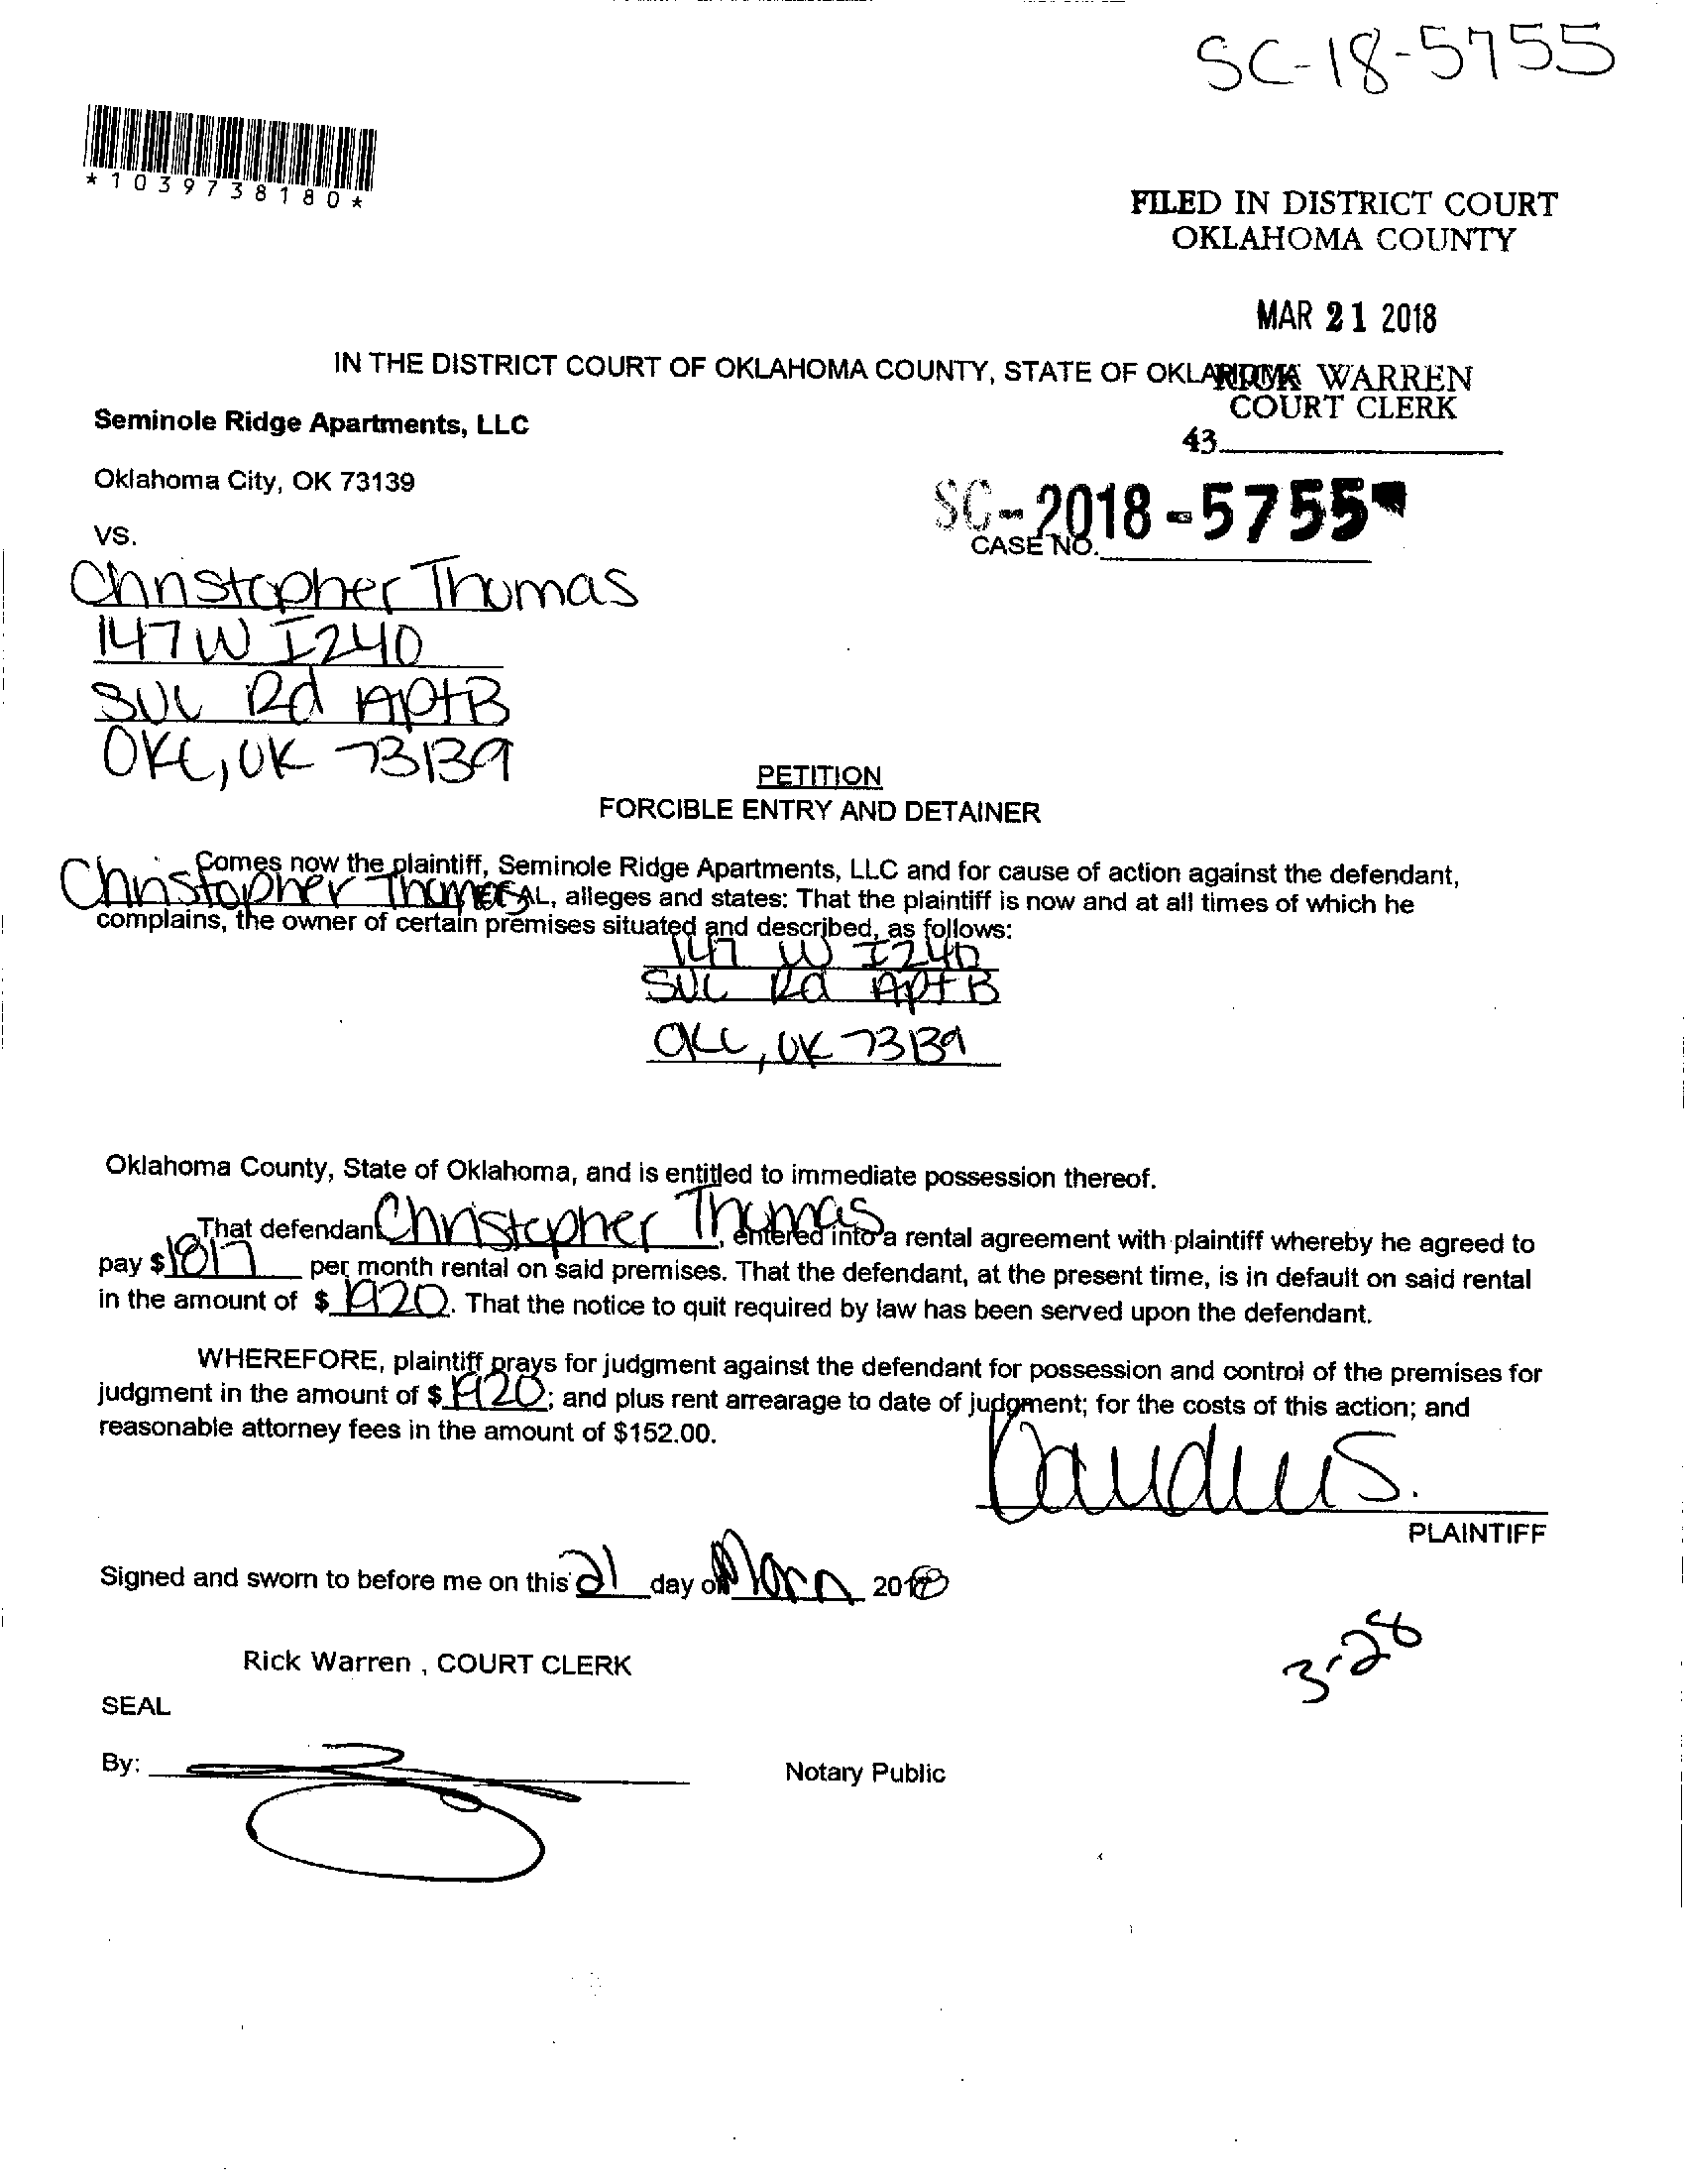 SC-18-5755
*1039738180*
FILED IN DISTRICT COURT
OKLAHOMA COUNTY
MAR 21 2018
IN THE DISTRICT COURT OF OKLAHOMA COUNTY, STATE OF OKLAHOMA
RICK WARREN
COURT CLERK
Seminole Ridge Apartments, LLC
43
Oklahoma City, OK 73139
SC-2018-5755
CASE NO.
VS.
Christopher Thomas
147 W I240
SVC Rd Apt B
OKC, OK 73139
PETITION
FORCIBLE ENTRY AND DETAINER
Comes now the plaintiff, Seminole Ridge Apartments, LLC and for cause of action against the defendant,
Christopher Thomas AL, alleges and states: That the plaintiff is now and at all times of which he
complains, the owner of certain premises situated and described, as follows:
147 W I240
SVC Rd Apt B
OKC, OK 73139
Oklahoma County, State of Oklahoma, and is entitled to immediate possession thereof.
That defendant Christopher Thomas, entered into a rental agreement with plaintiff whereby he agreed to
pay $1817 per month rental on said premises. That the defendant, at the present time, is in default on said rental
in the amount of $ 1920. That the notice to quit required by law has been served upon the defendant.
WHEREFORE, plaintiff prays for judgment against the defendant for possession and control of the premises for
judgment in the amount of $ 1920; and plus rent arrearage to date of judgment; for the costs of this action; and
reasonable attorney fees in the amount of $152.00.
PLAINTIFF
Signed and sworn to before me on this 21 day of March 2018
3-28
Rick Warren , COURT CLERK
SEAL
By:
Notary Public